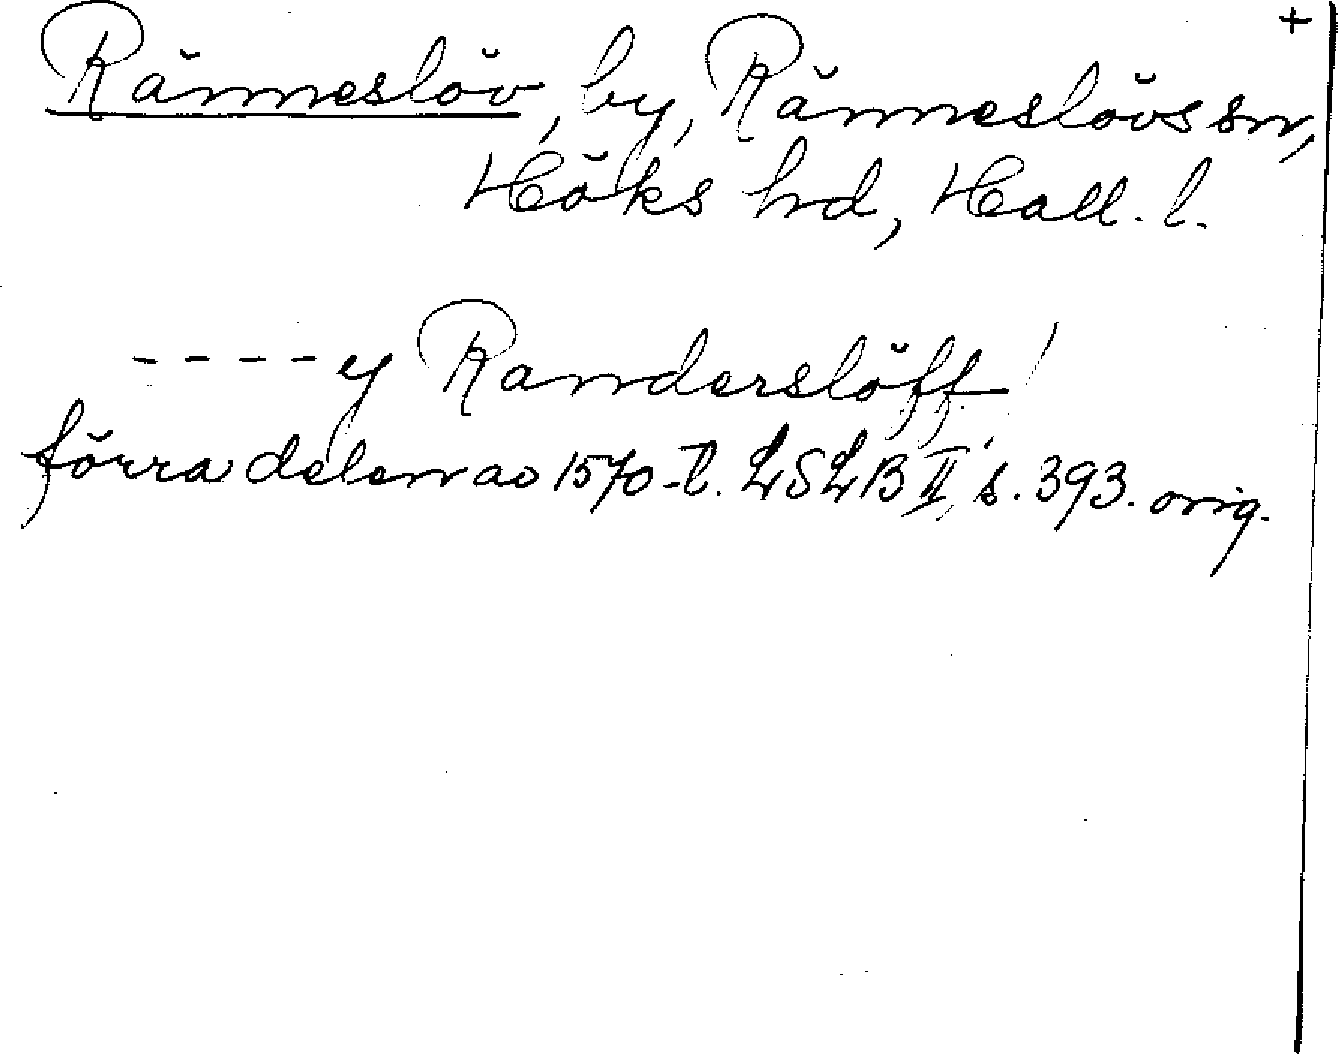 +
Ränneslöv, by, Ränneslövs sn,
Höks hd, Hall. l.
- - - - y Randerslöff /
förra delen av 1570-t. LSLB II, s. 393. orig.